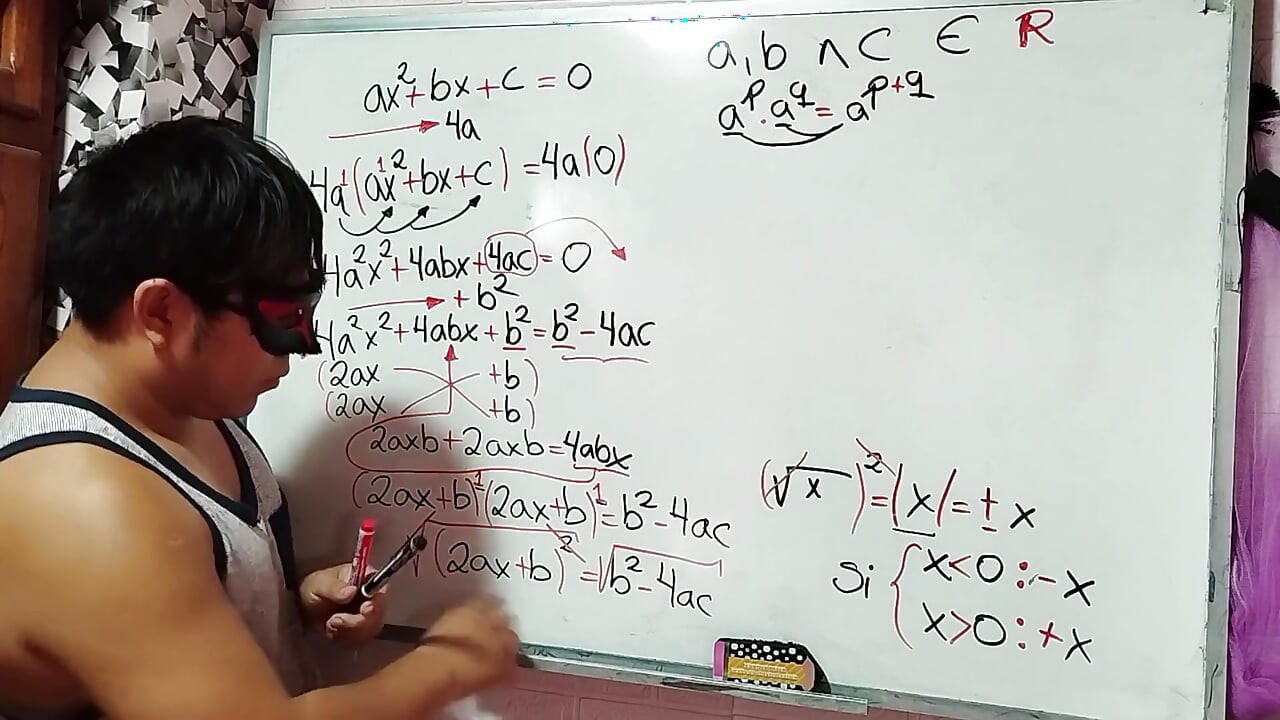 ax²+bx+c=0
4a
4a¹(a¹x²+bx+c)=4a(0)
4a²x²+4abx+4ac=0
+b²
4a²x²+4abx+b²=b²-4ac
(2ax +b)
(2ax +b)
2axb+2axb=4abx
(2ax+b)¹(2ax+b)¹=b²-4ac
√(2ax+b)²=√b²-4ac
a,b ∧ c ∈ R
a^p.a^q=a^p+q
(√x)²=|x|=±x
Si { x<0:-x
x>0:+x